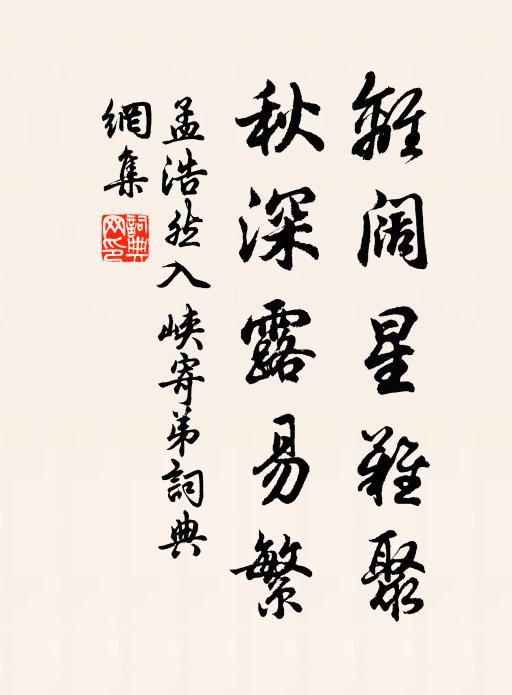 離阔星難聚
秋深露易繁
孟浩然入峽寄弟詞典
網集
詞典
网印